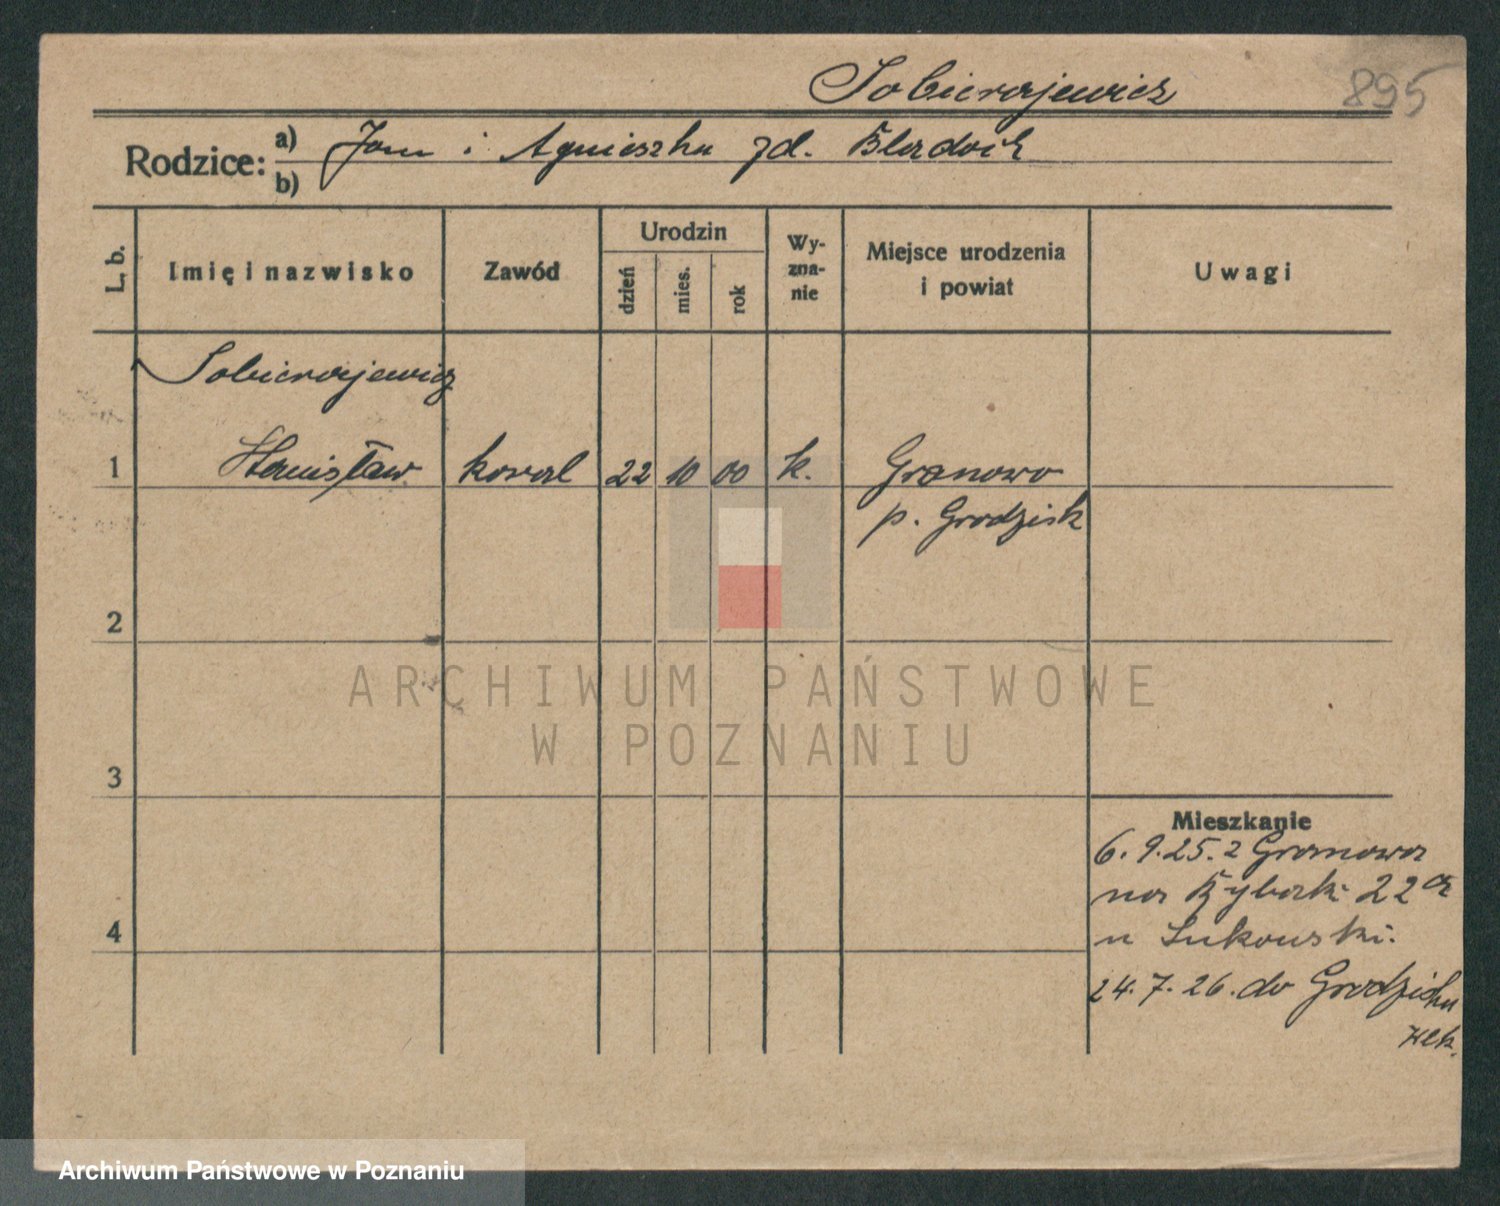 Sobierajewicz
895
Rodzice: a) Jan i Agnieszka zd.
b)
L. b.
Imię i nazwisko
Zawód
Urodzin
dzień
mies.
rok
Wy-
zna-
nie
Miejsce urodzenia
i powiat
Uwagi
Sobierajewicz
1 Stanisław kowal 22 10 00 k. Granowo
p. Grodzisk
2
3
4
Mieszkanie
6.9.25. z Granowa
na Rybaki 22a
u Łukowski.
24.7.26. do Grodziska
Wlk.
ARCHIWUM PAŃSTWOWE
W POZNANIU
Archiwum Państwowe w Poznaniu